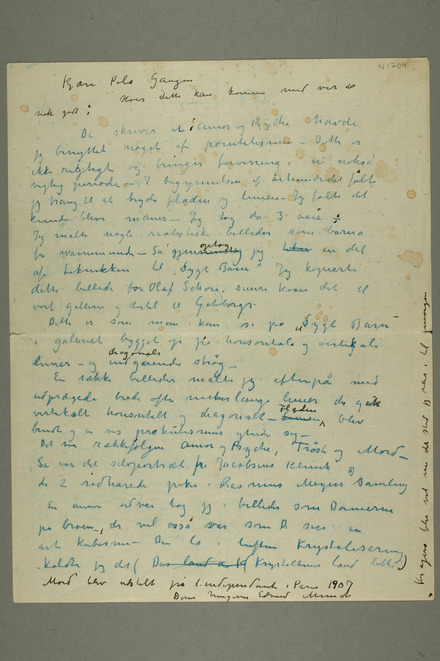 N 1704
Kjære Pola Gauguin
Hvis dette kan komme med var det
nok godt:
De skriver at i Amor og Psyche havde
jeg benyttet noget af pointelismen – Dette er
ikke rigtigt og bringer forvirring i en nokså
vigtig periode – I begynnelsen af århundredet følte
jeg trang til at bryde fladen og linien – Jeg følte det
kunde blive maner – Jeg tog da 3 veie:
Jeg malte nogle realistiske billeder som barna
fra Warnemünde – Så gjenoptog jeg en del
af teknikken til Sygt Barn – Jeg kopierte
dette billede for Olaf Schou, senere kom det til
vort galleri og dertil til Gøteborg.
Dette er som man kan se på „Sygt Barn"
i galleriet bygget op på horisontale og vertikale
linier – og diagonale strøg –
En række billeder malte jeg efterpå med
udprægede brede ofte meterlange linier der gik
vertikalt horisontalt og diagonalt – Fladen blev
brudt og en vis prækubisme ytrede sig –
Det var rækkefølgen Amor og Psyche, Trøst og Mord –
Så var det selvportræt fra Jacobsens klinik og
de 2 rødhårede piker i Rasmus Meyers Samling
En anden udvei tog jeg i billeder som Damerne
på broen, der vil også være som De sier en
art kubisme – Den lå i luften Krystalisering
kaldte jeg det (Krystallernes land
Mord blev udstilt på l'independent i Paris 1907
Deres hengivne Edvard Munch